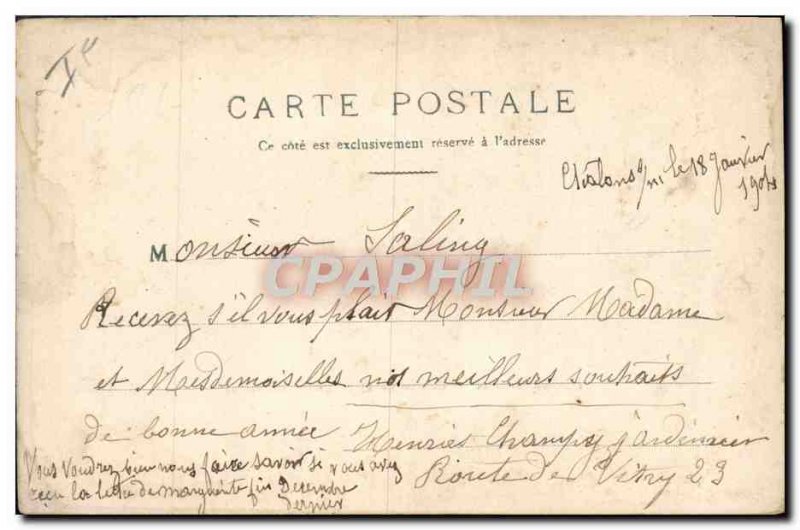 Ie
CARTE POSTALE
Ce côté est exclusivement réservé à l'adresse
Chalons s/m le 18 Janvier
Monsieur Saling
CPAPHIL
Recevez s'il vous plait Monsieur Madame
et Mesdemoiselles nos meilleurs souhaits
de bonne année Henries Champy jardinier
Route de Vitry 23
Vous voudrez bien nous faire savoir si vous avez
reçu la lettre de marguerite fin Decembre
dernier